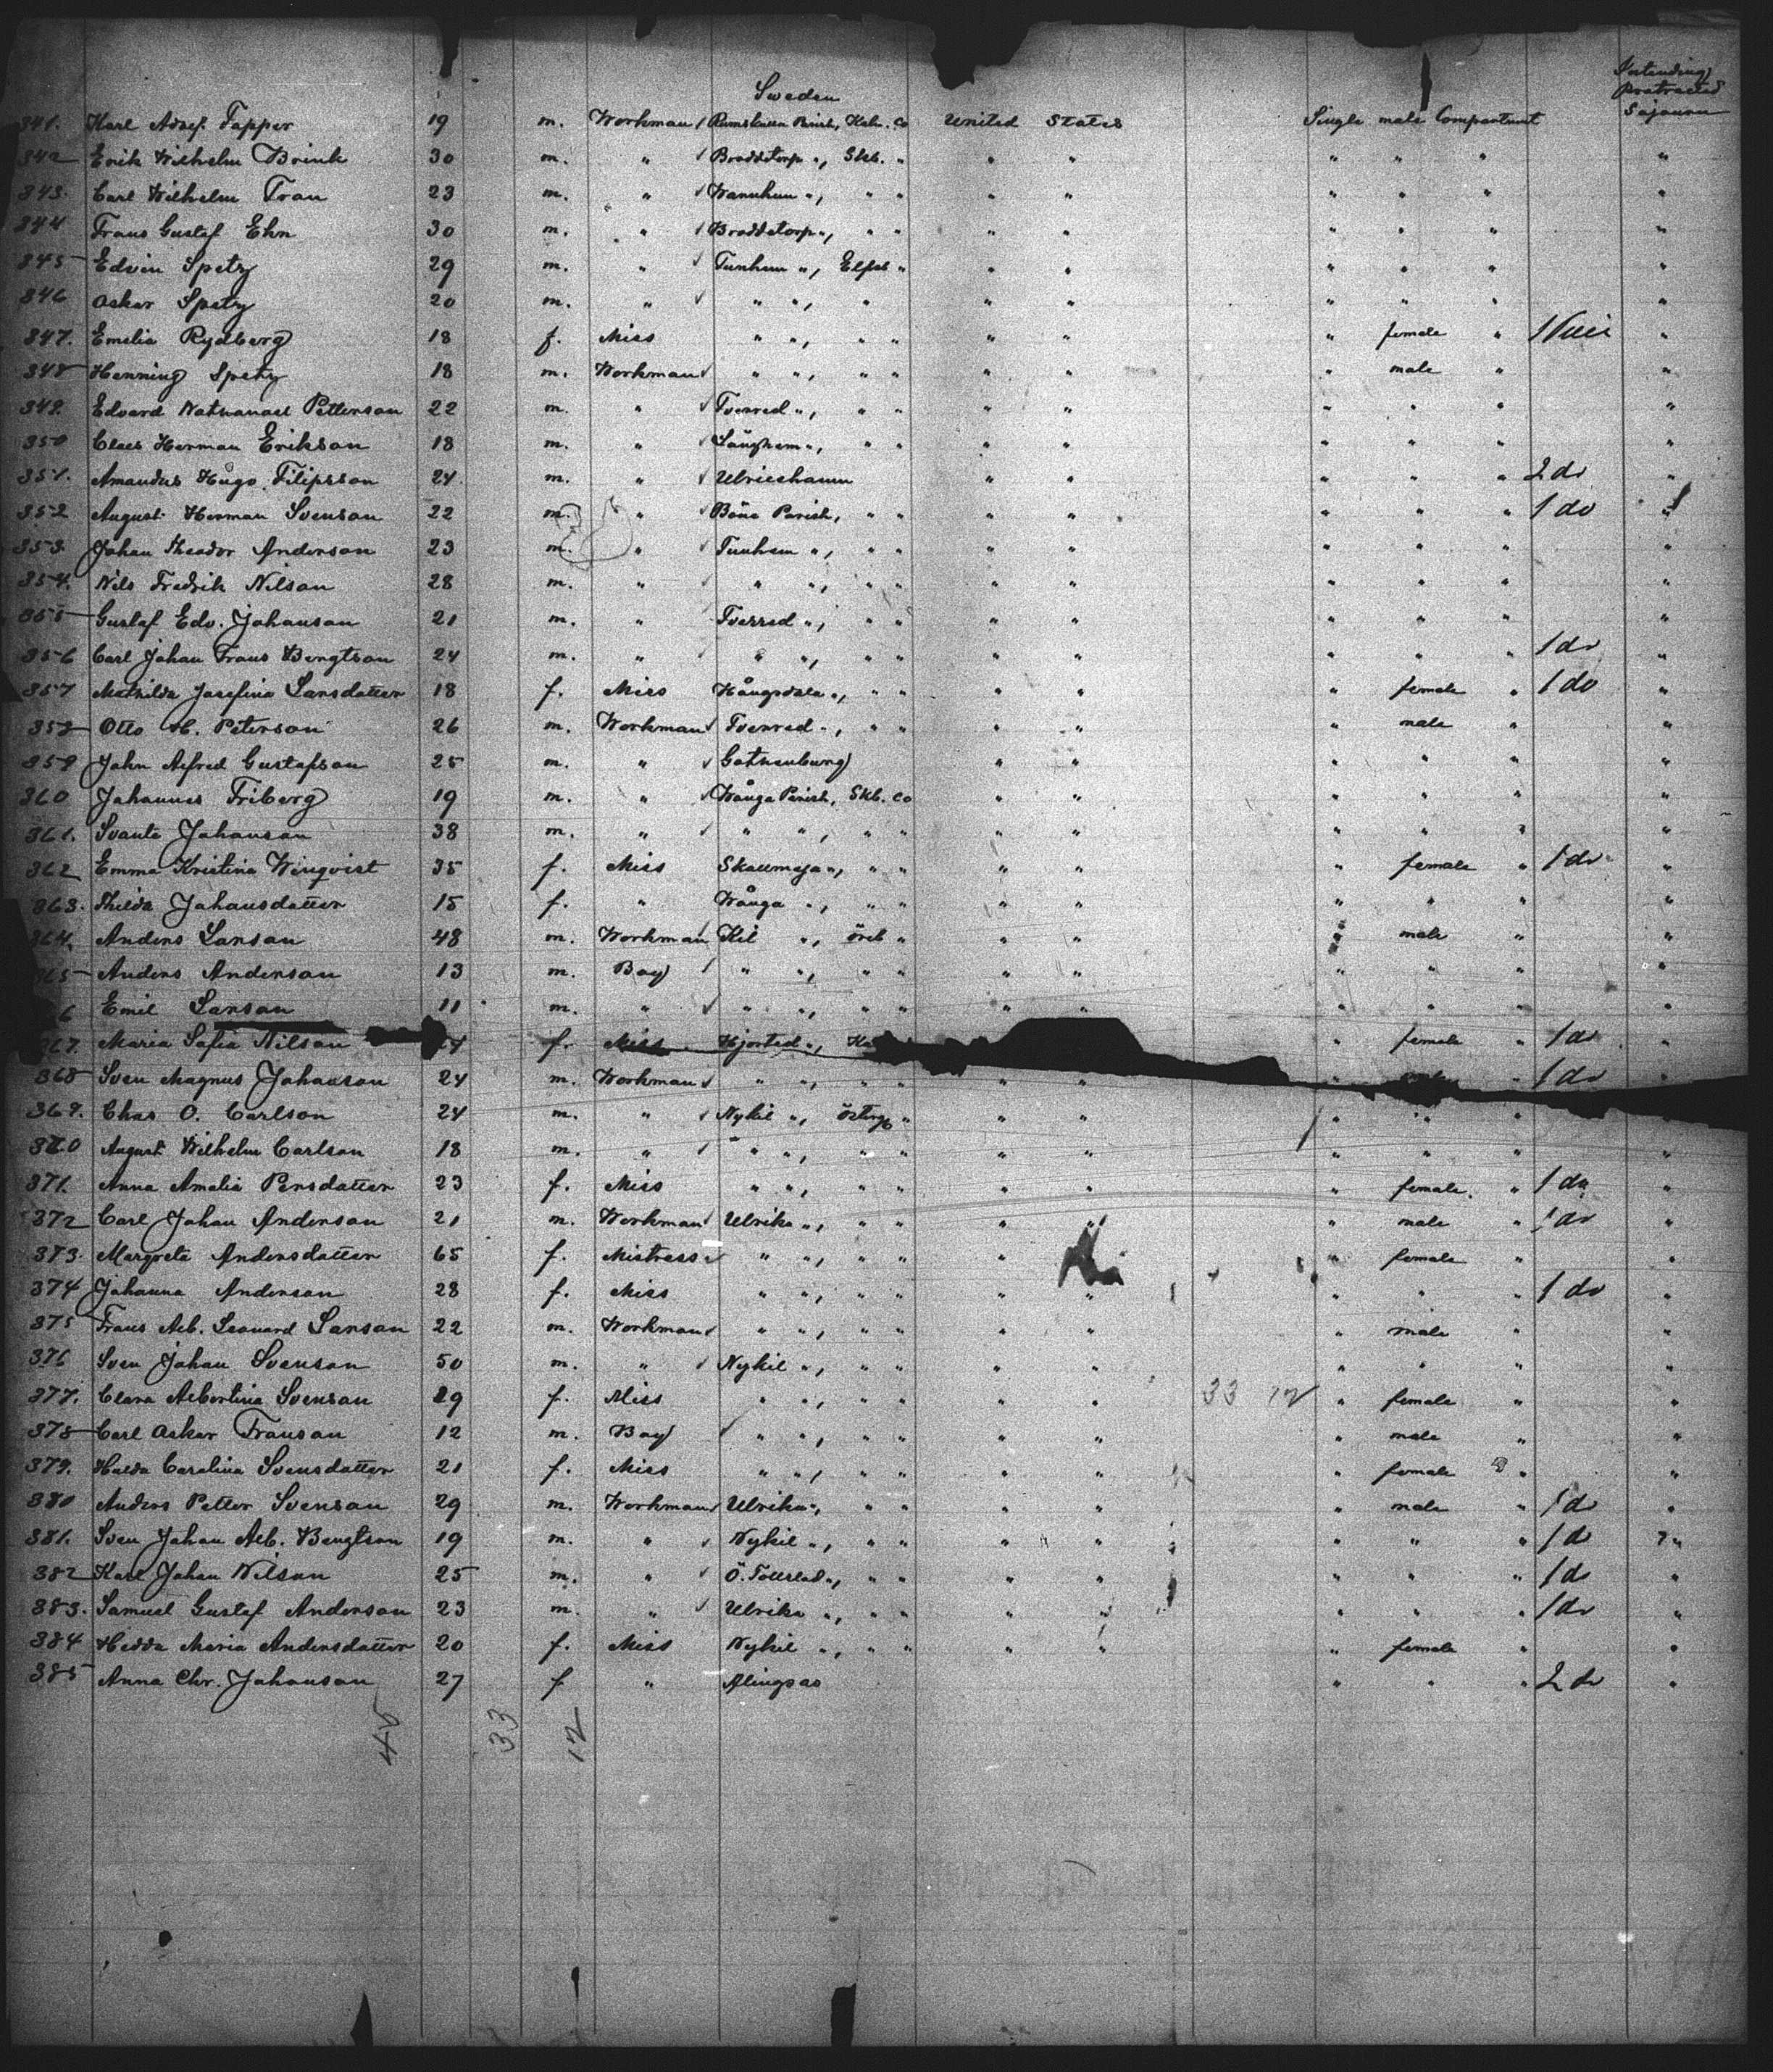 Sweden
Intending
Protracted
Sojourn
341. Karl Adolf Tapper 19 m. Workman Rumskulla Parish, Kalm. Co United States Single male Compartment
342 Erik Wilhelm Brink 30 m. " Braddetorp ", Skb. " " " " " " "
343. Carl Wilhelm Tran 23 m. " Wanhem ", " " " " " " " "
344 Frans Gustaf Ehn 30 m. " Braddetorp ", " " " " " " " "
345 Edvin Spetz 29 m. " Tunhem ", Elfsb " " " " " " "
346 Oskar Spetz 20 m. " " ", " " " " " " "
347. Emelia Rydberg 18 f. Miss " ", " " " " " female " 1 "
348 Henning Spetz 18 m. Workman " ", " " " " " male " "
349. Edvard Nathanael Petterson 22 m. " Tverred ", " " " " " " " "
350 Claes Herman Erikson 18 m. " Länghem ", " " " " " " " "
351. Amandus Hugo Filipsson 24 m. " Ulricehamn " " " " " 2 do "
352 August Herman Svenson 22 m. " Böne Parish, " " " " " " " 1 do "
353. Johan Theodor Anderson 23 m. " Tunhem ", " " " " " " " "
354. Nils Fredrik Nilson 28 m. " " ", " " " " " " " "
355 Gustaf Edv. Johanson 21 m. " Tverred ", " " " " " " " "
356 Carl Johan Frans Bengtson 24 m. " " ", " " " " " " " 1 do "
357 Mathilda Josefina Larsdatter 18 f. Miss Hångsdala ", " " " " " female " 1 do "
358 Otto H. Peterson 26 m. Workman Tverred ", " " " " " male " "
359 John Alfred Gustafson 25 m. " Gothenburg " " " " " "
360 Johannes Friberg 19 m. " Wånga Parish, Skb. Co " " " " " "
361. Svante Johanson 38 m. " " ", " " " " " " " "
362 Emma Kristina Winqvist 35 f. Miss Skallmeja ", " " " " " female " 1 do "
363. Thilda Johansdatter 15 f. " Wånga ", " " " " " " " "
364. Anders Larson 48 m. Workman Kil ", Öreb " " " " male " "
365 Anders Anderson 13 m. Boy " ", " " " " " " " "
66 Emil Larson 11 m. " " ", " " " " " " " "
367. Maria Sofia Nilson 4 f. Miss Hjorted ", Ka " female " 1 do "
368 Sven Magnus Johanson 24 m. Workman " ", " " " " " " 1 do "
369. Chas O. Carlson 24 m. " Nykil ", Östergö " " " " " "
370 August Wilhelm Carlson 18 m. " " ", " " " " " " " "
371. Anna Amalia Persdatter 23 f. Miss " ", " " " " " female. " 1 do "
372 Carl Johan Anderson 21 m. Workman Ulrika ", " " " " " male " 1 do "
373. Margreta Andersdatter 65 f. Mistress " ", " " " " " female " "
374 Johanna Anderson 28 f. Miss " ", " " " " " " " 1 do "
375 Frans Alb. Leonard Larson 22 m. Workman " ", " " " " " male " "
376 Sven Johan Svenson 50 m. " Nykil ", " " " " " " " "
377. Clara Albertina Svenson 29 f. Miss " ", " " " " 33 12 " female " "
378 Carl Oskar Franson 12 m. Boy " ", " " " " " male " "
379. Hulda Carolina Svensdatter 21 f. Miss " ", " " " " " female " "
380 Anders Petter Svenson 29 m. Workman Ulrika ", " " " " " male " 1 do "
381. Sven Johan Alb. Bengtson 19 m. " Nykil ", " " " " " " " 1 do "
382 Karl Johan Nilson 25 m. " Ö. Tollstad ", " " " " " " " 1 do "
383. Samuel Gustaf Anderson 23 m. " Ulrika ", " " " " " " " 1 do "
384 Hedda Maria Andersdatter 20 f. Miss Nykil ", " " " " " female " "
385 Anna Chr. Johanson 27 f " Alingsas " " " 2 do "
45 33 12